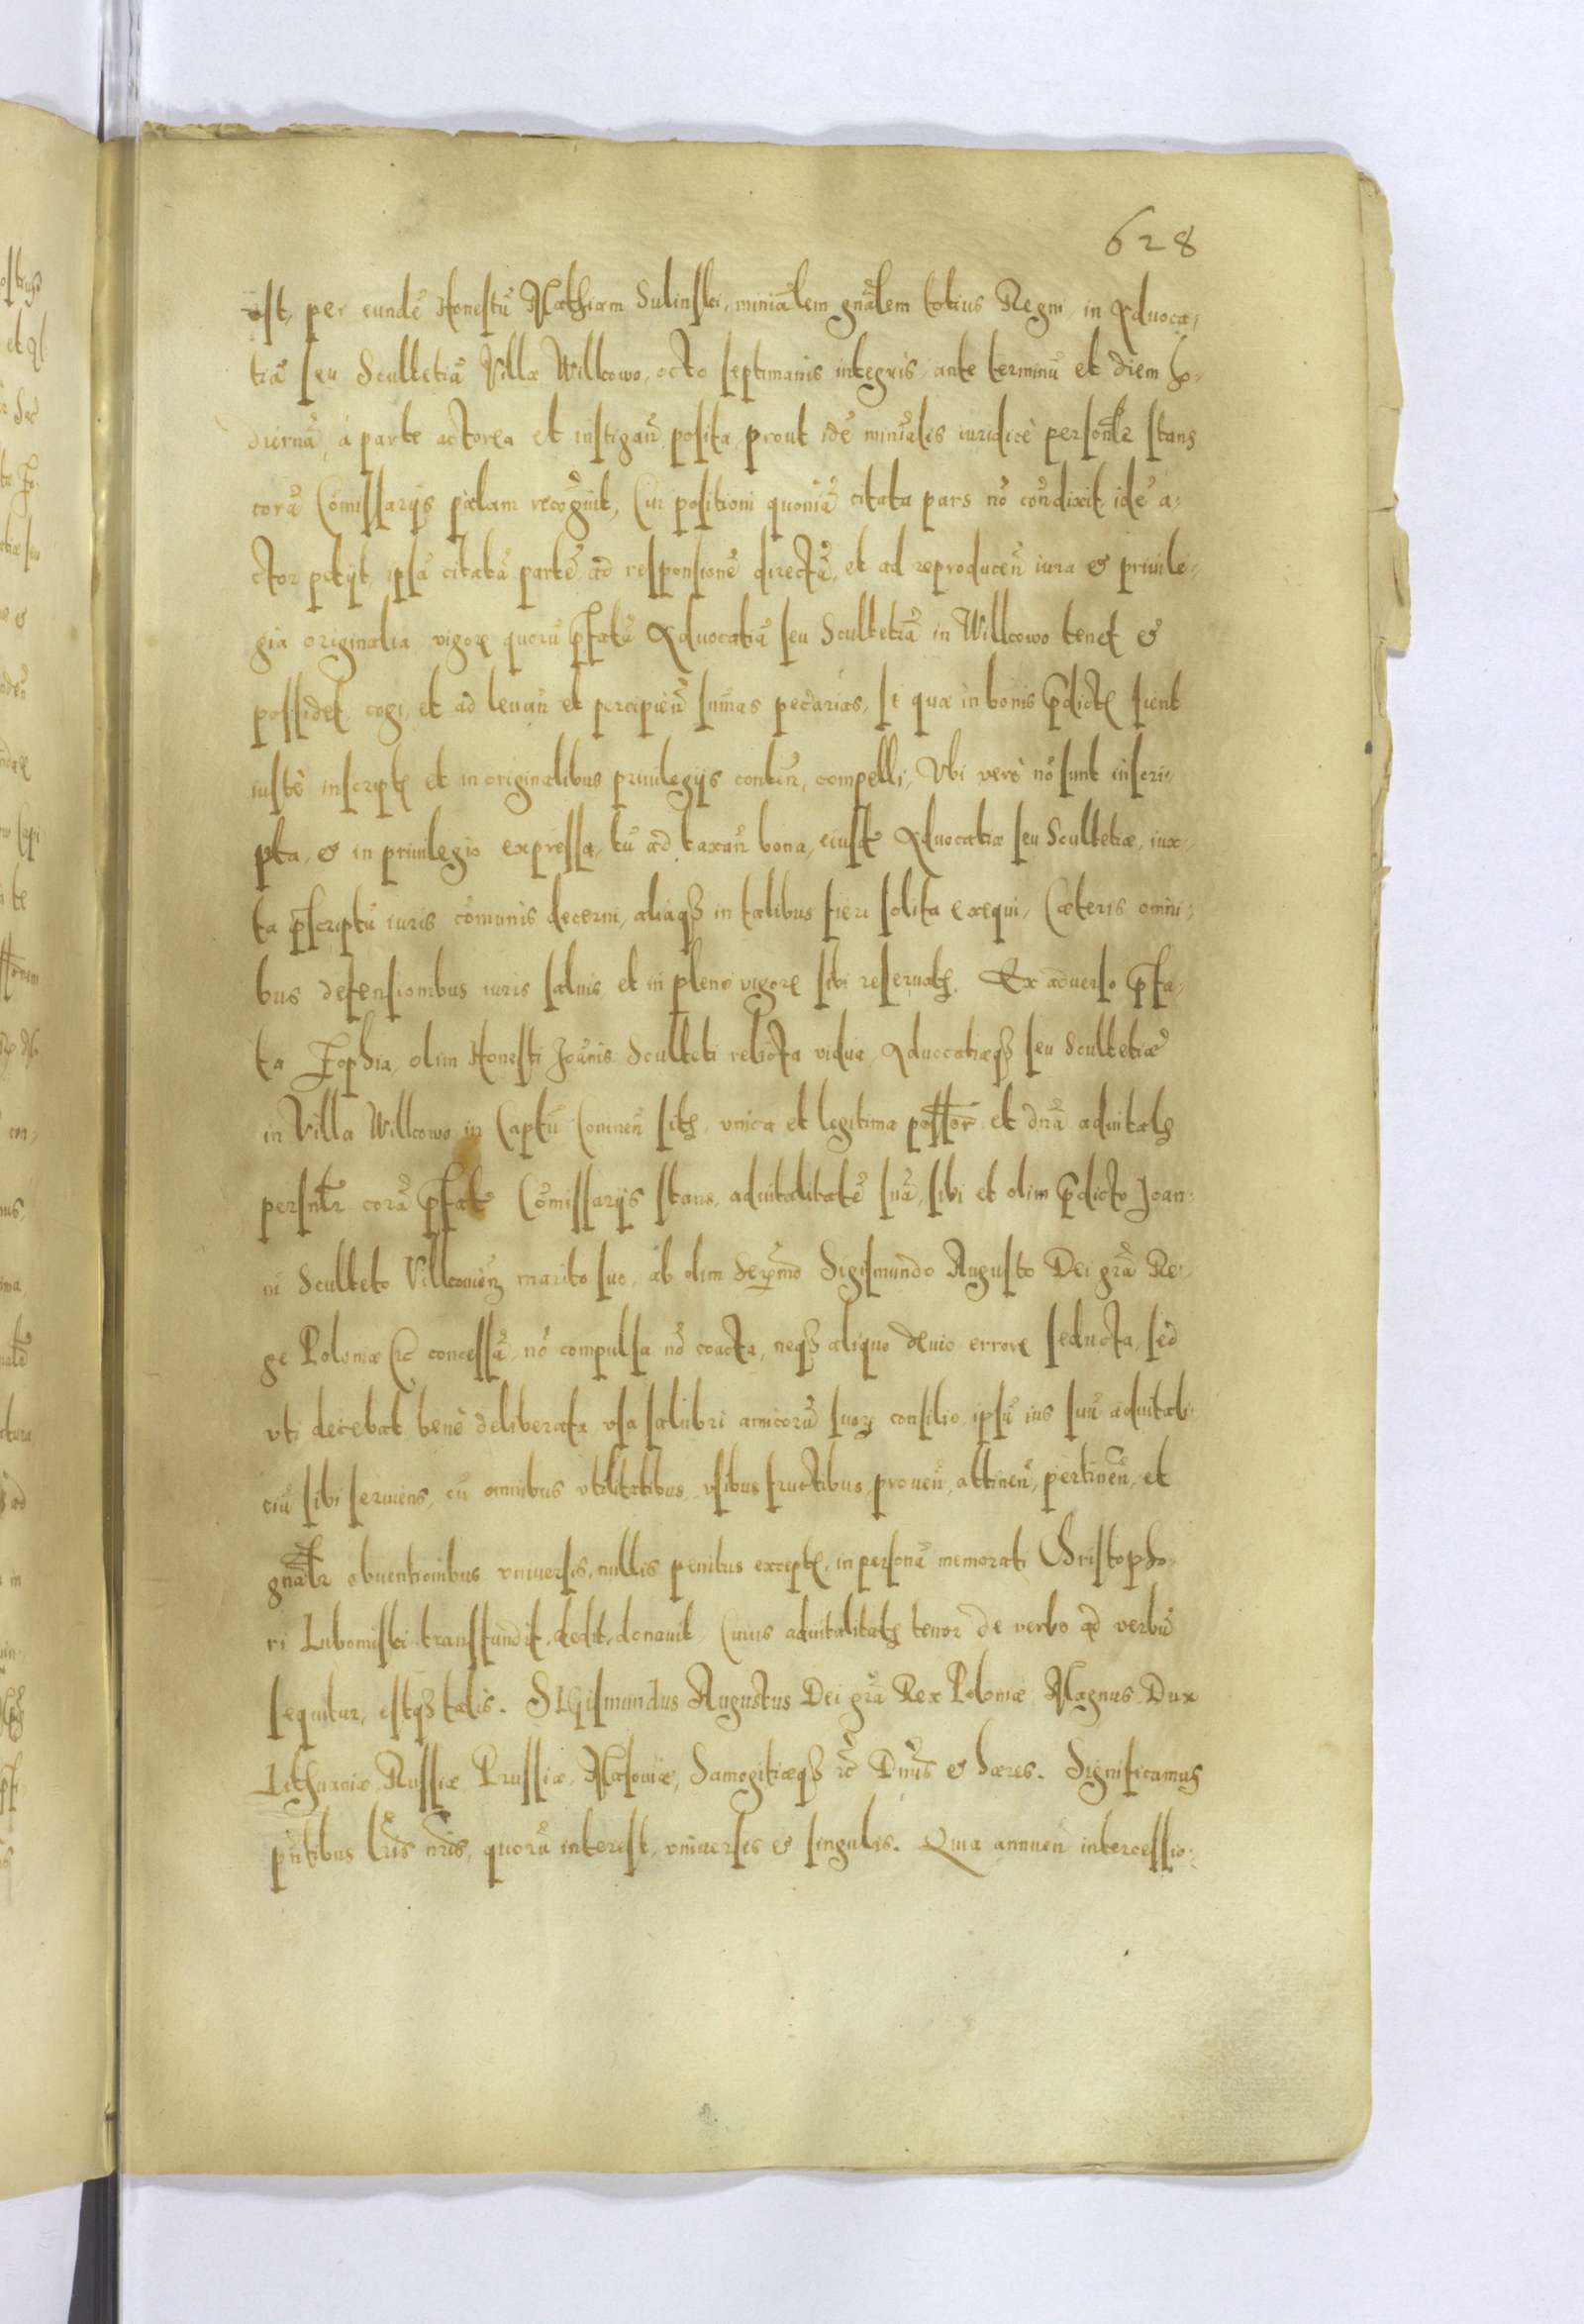 628
est, per eundē Honestū Mathiam Sulinski, miniālem gnālem totius Regni, in Aduoca-
tiā seu Scultetiā Villæ Wilkowo, octo septimanis integris, ante terminū et diem ho-
diernā, à parte actorea et instigañ posita, prout idē minīalis iuridicè personlr̄ stans
corā Com̄issarijs palam recogūit, Cui positioni quoniā citata pars nō condixit, idē a-
ctor petijt, ipsā citatā partē ad responsionē directā, et ad reproduceñ iura & priuile-
gia originalia, vigore quorū p̄fatā Aduocatiā seu Scultetiā in Wilkowo tenet &
possidet, cogi, et ad leuañ et percipieñ sum̄as pec̄iarias, si quæ in bonis p̄dictꝭ sient
iustè inscriptꝭ et in originalibus priuilegijs conteñ, compelli, Vbi verò nō sunt inscri-
pta, & in priuilegio expressa, tū ad taxañ bona, eiusdē Aduocatiæ seu Scultetiæ, iux-
ta p̄scriptū iuris com̄unis decerni, aliaqꝫ in talibus fieri solita exequi, Cæteris omni-
bus defensionibus iuris saluis, et in pleno vigore sibi reseruatꝭ. Ex aduerso p̄fa-
ta Zophia, olim Honesti Joānis Sculteti relicta vidua, Aduocatiæqꝫ seu Scultetiæ
in Villa Wilkowo in Captū Conineñ sitꝭ, vnica et legitima possꝛ̄ et dnā aduitalꝭ
persnlr̄ corā p̄fatꝭ Com̄issarijs stans, aduitalitatē suā, sibi et olim p̄dicto Joan-
ni Sculteto Vilkouieñ marito suo, ab olim Serpmō Sigismundo Augusto Dei grā Re-
ge Poloniæ &c concessā, nō compulsa nō coacta, neqꝫ aliquo deuio errore seducta, sed
vti decebat benè deliberata vsa salubri amicorū suoꝝ consilio, ipsū ius suū aduitali-
ciū sibi seruiens, cū omnibus vtilitatibus vsibus fructibus, proueñ, attineñ, pertineñ, et
gnālr̄ obuentionibus vniuersis, nullis penitus exceptꝭ, in personā memorati Christopho-
ri Lubomiski transfundit, dedit, donauit, Cuius aduitalitatꝭ tenor de verbo ad verbū
sequitur, estqꝫ talis. SIGismundus Augustus Dei grā Rex Poloniæ, Magnus Dux
Lithuaniæ, Russiæ Prussiæ, Masouiæ, Samogitiæqꝫ &c Dnūs & hæres. Significamus
pn̄tibus lrīs nrīs, quorū interest, vniuersis & singulis. Quia annueñ intercessio-